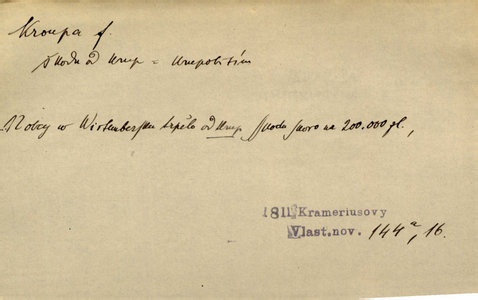 Kroupa f.
škodu od krup = krupobitím
Nobcy w Wirtembersku trpělo od krup škodu skoro na 200.000 zl.,
1811 Krameriusovy
Vlast.nov. 144a, 16.